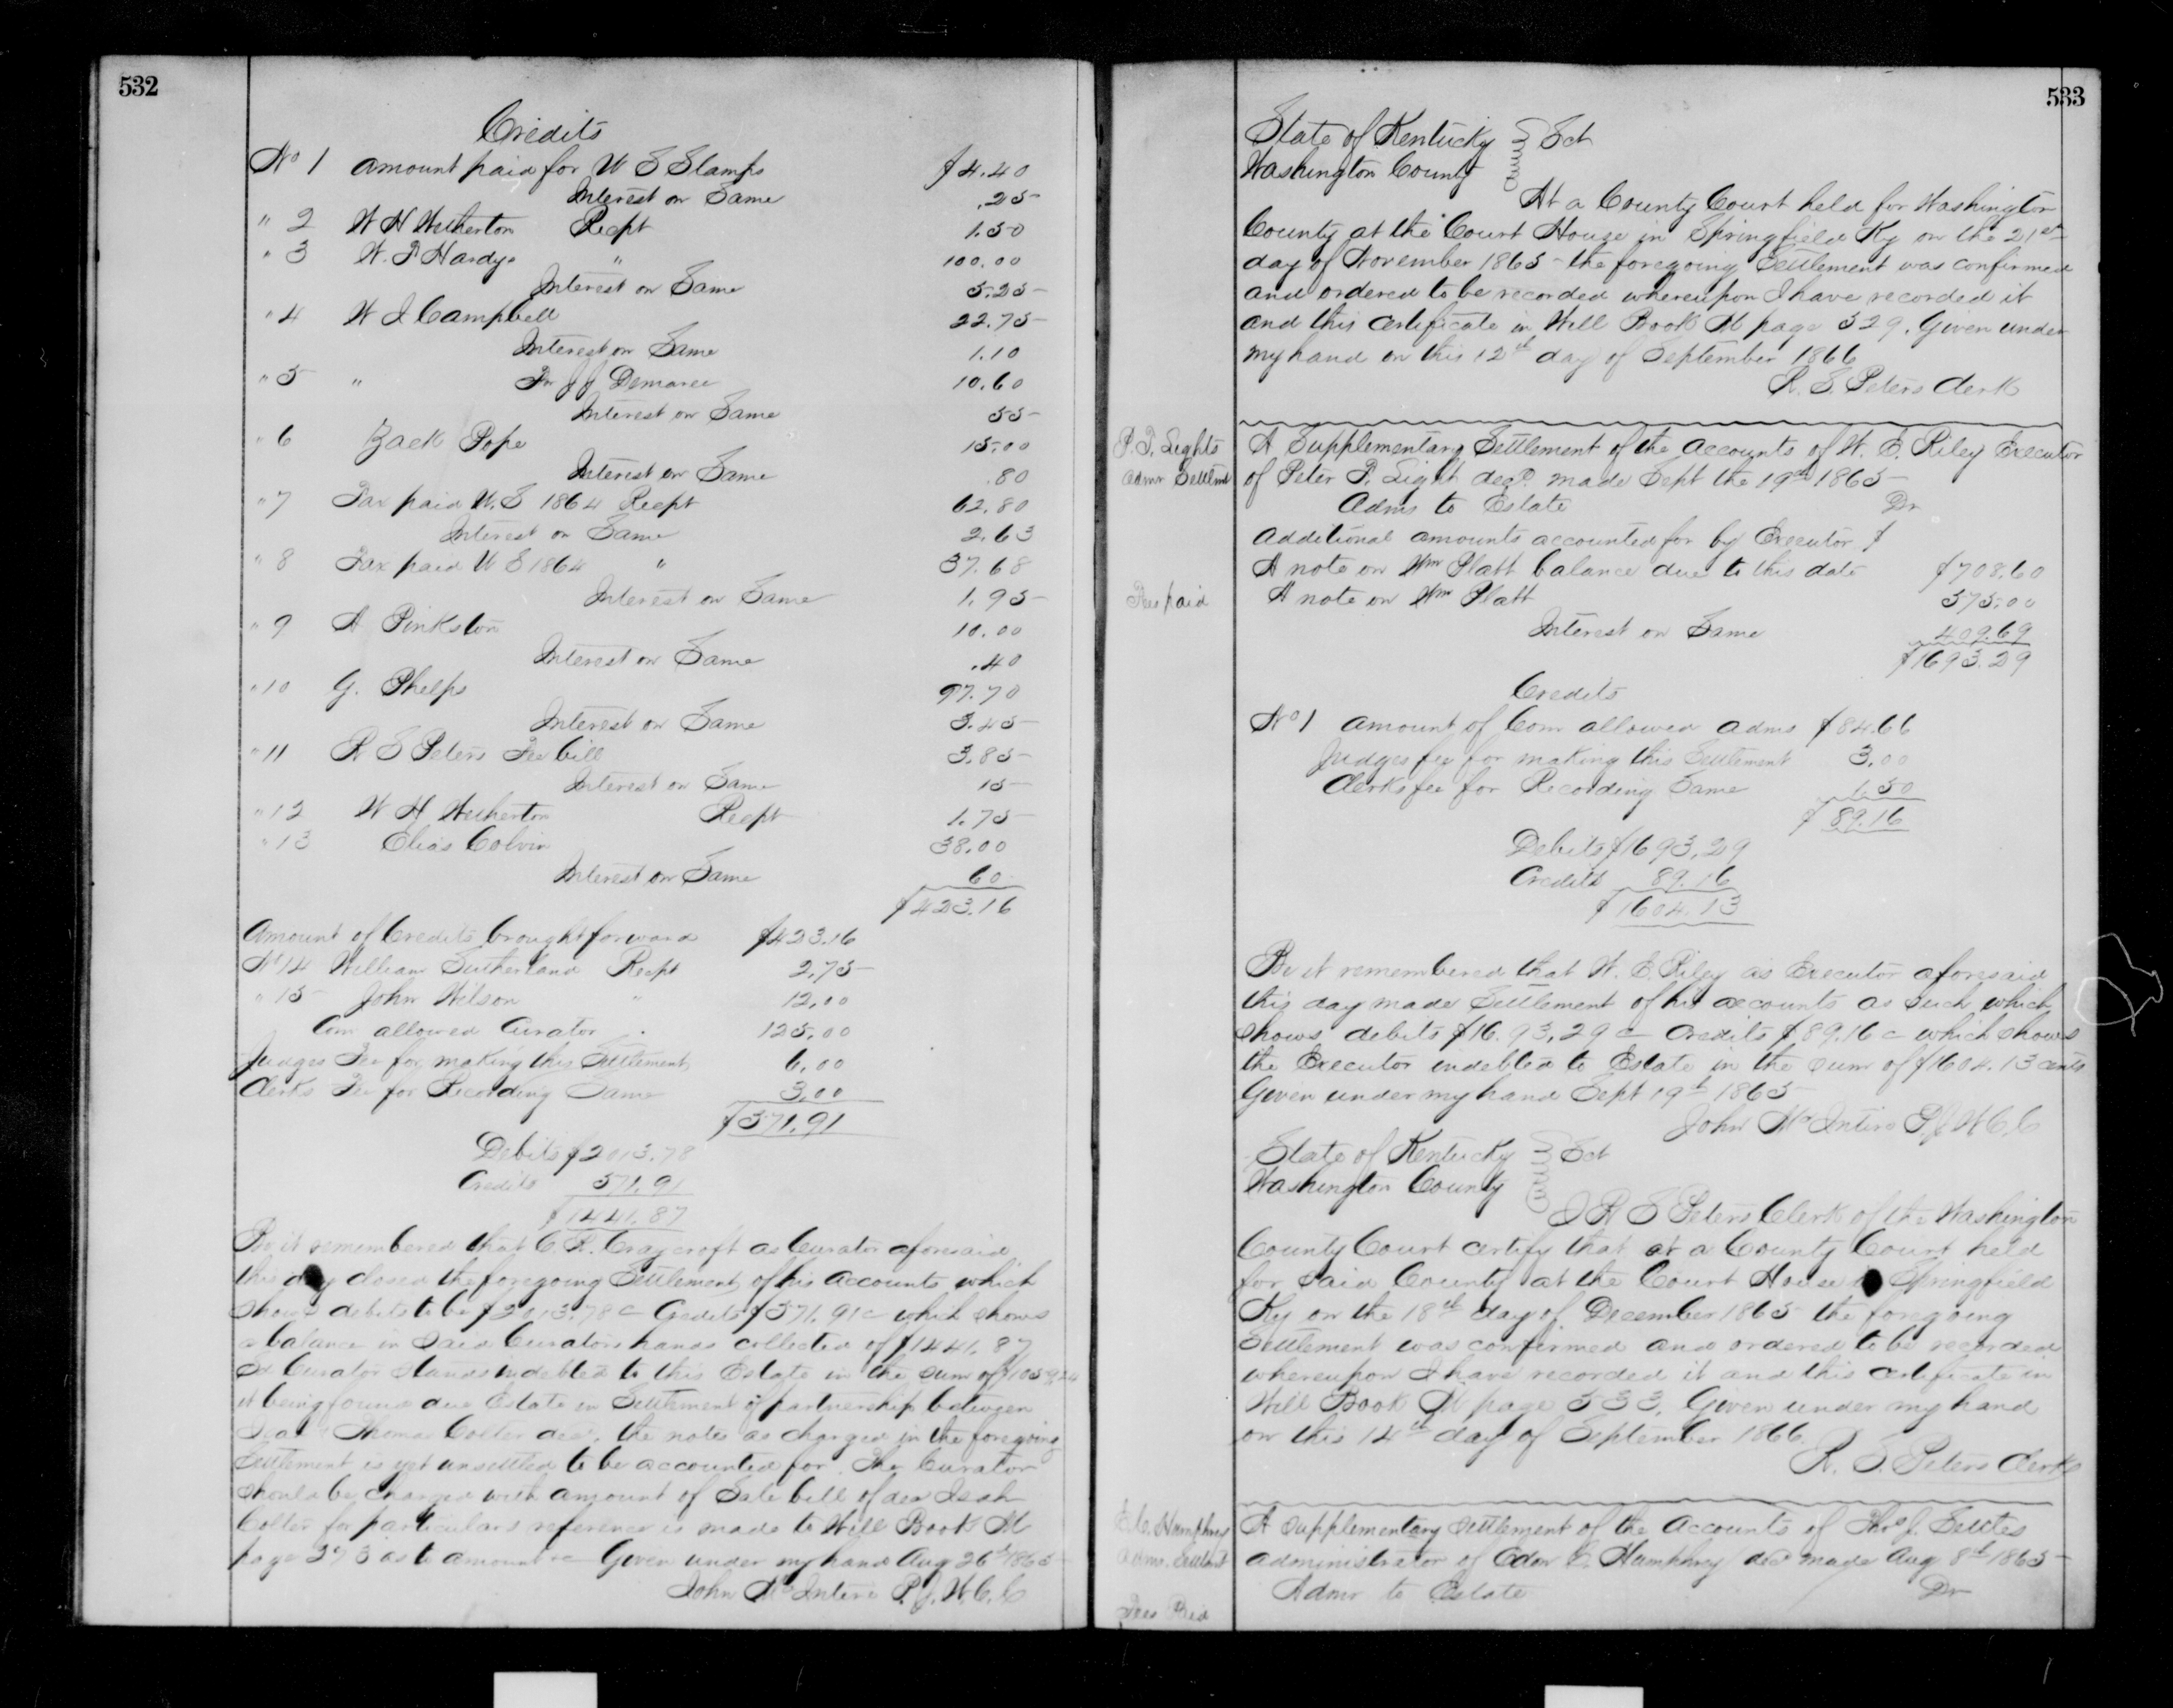 532
Credits
No 1 Amount paid for U S Stamps $4.40
Interest on Same .25
" 2 W H Wetherton Recpt 1.50
" 3 W. P. Hardys " 100.00
Interest on Same 5.25
" 4 W J Campbell 22.75
Interest on Same 1.10
" 5 " Dr J J Demaree 10.60
Interest on Same 55
" 6 Zack Pope 15.00
Interest on Same .80
" 7 Tax paid U.S 1864 Recpt 62.80
Interest on Same 2.63
" 8 Tax paid U S 1864 " 37.68
Interest on Same 1.95
" 9 A Pinkston 10.00
Interest on Same .40
" 10 G. Phelps 97.70
Interest on Same 3.45
" 11 R S Peters Fee bill 3.85
Interest on Same 15
" 12 W H Wetherton Recpt 1.75
" 13 Elias Colvin 38.00
Interest on Same 60
$423.16
Amount of Credits brought forward $423.16
No 14 William Sutherland Recpt 2.75
" 15 John Wilson " 12.00
Com allowed Curator 125.00
Judges Fee for making this Settlement 6.00
Clerks Fee for Recording Same 3.00
$571.91
Debits $2013.78
Credits 571.91
$1441.87
Be it remembered that C. R. Craycroft as Curator aforesaid
this day closed the foregoing Settlement of his accounts which
shows debits to be $2013.78 c Credits $571.91 c which shows
a balance in said Curators hands collected of $1441.87
Curator stands indebted to this Estate in the sum of
it being found due Estate in Settlement of partnership between
Thomas Colter decd, the notes as charged in the foregoing
Settlement is yet unsettled to be accounted for. The Curator
should be charged with amount of Sale bill of
Colter for particulars reference is made to Will Book M
page as to amount &c Given under my hand Aug 26th 1865
John McIntire P.J.W.C.C
533
State of Kentucky } Sct
Washington County
At a County Court held for Washington
County at the Court House in Springfield Ky on the 21st
day of November 1865 the foregoing Settlement was confirmed
and ordered to be recorded whereupon I have recorded it
and this certificate in Will Book M page 529. Given under
my hand on this 12th day of September 1866
R. S. Peters Clerk
P. P. Lights
Admr Settlmt
A Supplementary Settlement of the accounts of W. E. Riley Executor
of Peter P. Light decd. made Sept the 19th 1865
Adms to Estate Dr
Additional amounts accounted for by Executor $
A note on Wm Platt balance due to this date $708.60
Fees paid
A note on Wm Platt 575.00
Interest on Same 409.69
$1693.29
Credits
No 1 Amount of Com allowed adms $84.66
Judges fee for making this Settlement 3.00
Clerks fee for Recording Same 1.50
$89.16
Debits $1693.29
Credits 89.16
$1604.13
Be it remembered that W. E. Riley as Executor aforesaid
this day made Settlement of his accounts as such which
shows debits $16.93,29 c Credits $89.16 c which shows
the Executor indebted to Estate in the sum of $1604.13 cents
Given under my hand Sept 19th 1865
John McIntire P.J.W.C.C
State of Kentucky } Sct
Washington County
I R S Peters Clerk of the Washington
County Court certify that at a County Court held
for said County at the Court House in Springfield
Ky on the 18th day of December 1865 the foregoing
Settlement was confirmed and ordered to be recorded
whereupon I have recorded it and this certificate in
Will Book M page 533. Given under my hand
on this 14th day of September 1866.
R. S. Peters Clerk
E. C. Humphrey
Admr. Settlmt
A Supplementary Settlement of the Accounts of Thos J. Settles
administrator of Edw C. Humphrey decd made Aug 8th 1865
Admr to Estate Dr
Fees Paid